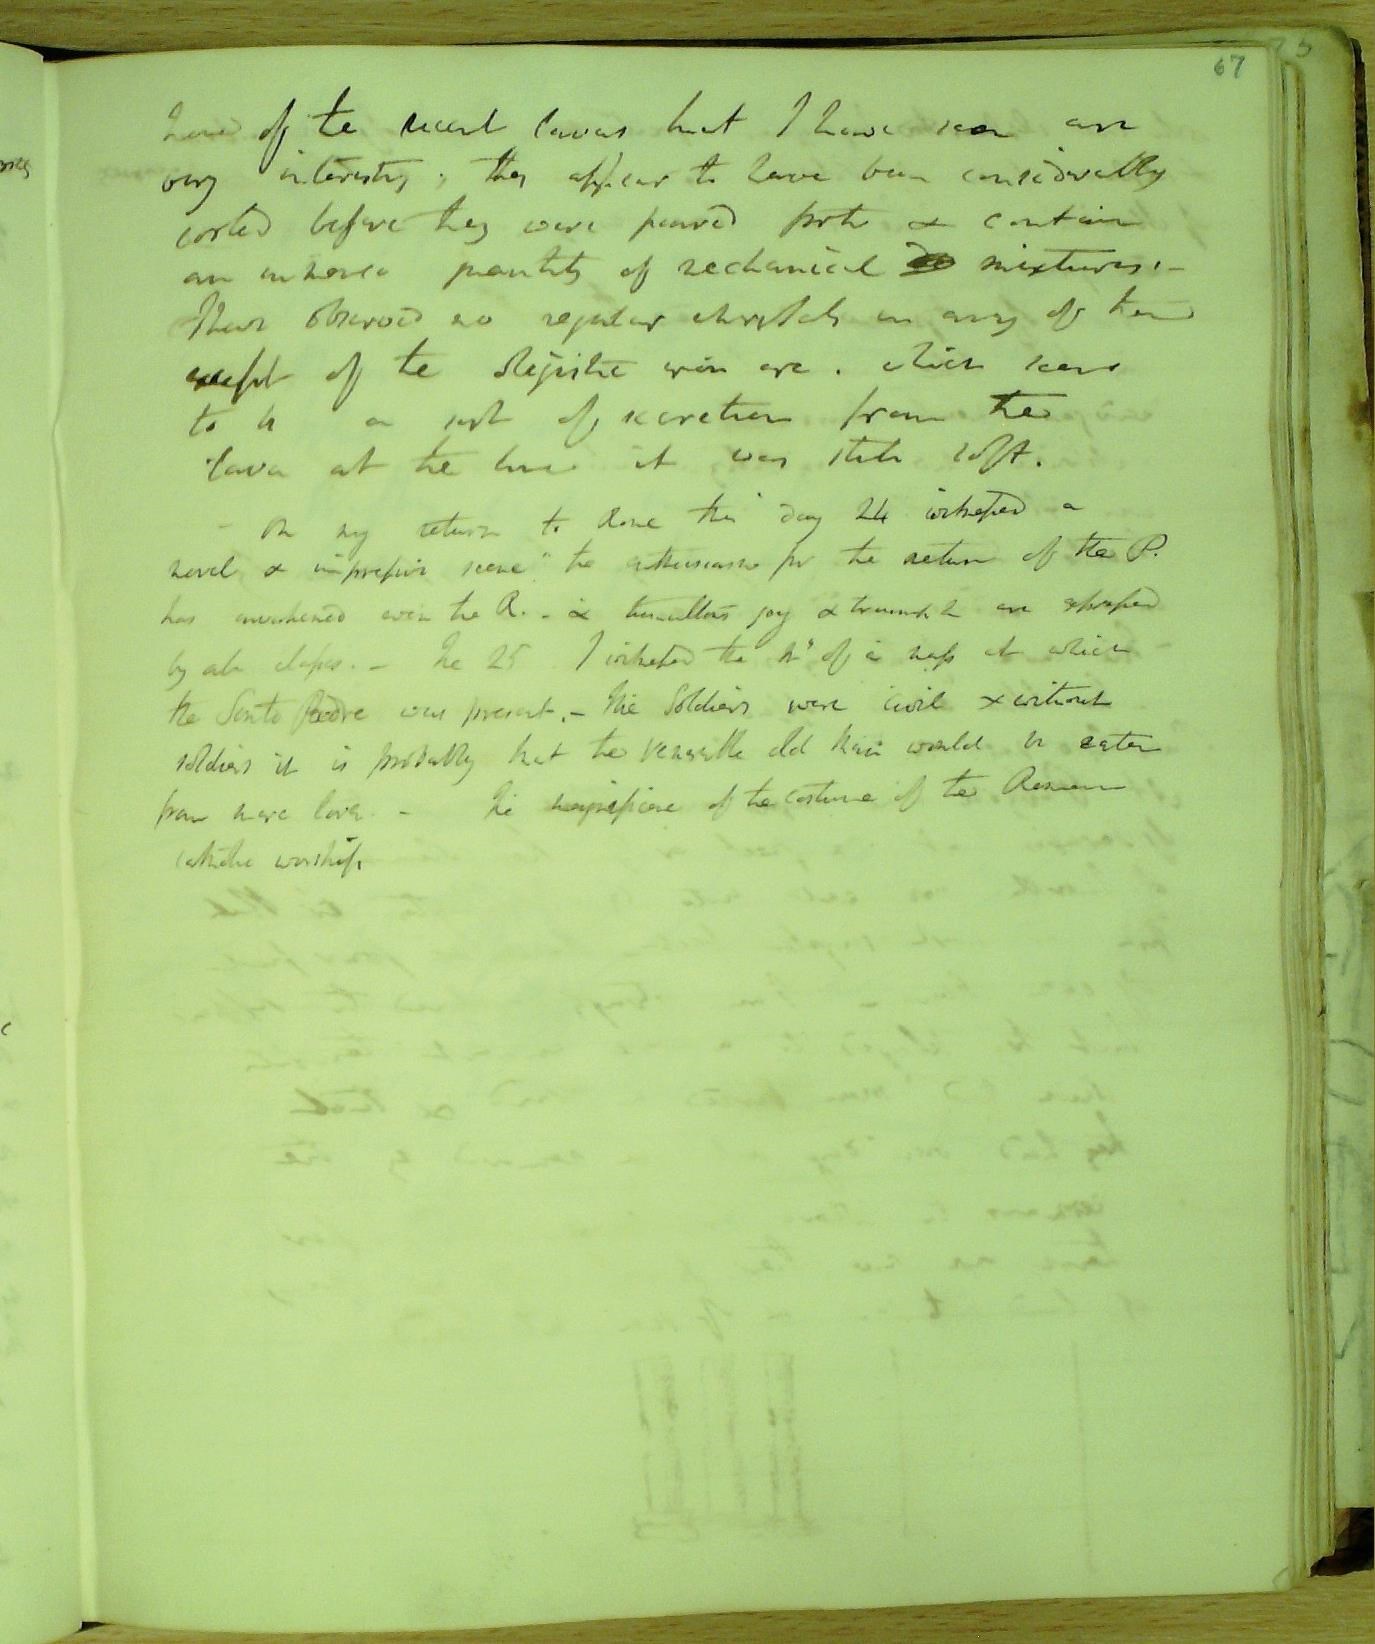 67
None of the recent lavas that I have seen are
very interesting; they appear to have been considerably
cooled before they were poured forth & contain
an immense quantity of mechanical mixtures. -
I have observed no regular chrystals in any of them
except of the iron ore. which seems
to be a sort of secretion from the
lava at the time it was still soft.
- On my return to Rome this day 24 witnessed a
novel & impressive scene the enthusiasm for the return of the P.
has awakened even the R. - & tumultous joy & triumph are expressed
by all classes. - The 25 I witnessed the of a mass at which
the Santo Padre was present. - The Soldiers were civil & without
soldiers it is probably that the venerable old Man would be eaten
from mere love. - The magnificence of the costume of the Roman
catholic worship.